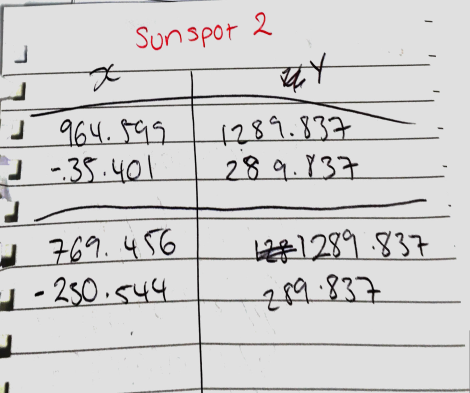 Sunspot 2
x Y
964.599 1289.837
-35.401 289.837
769.456 1289.837
-230.544 289.837